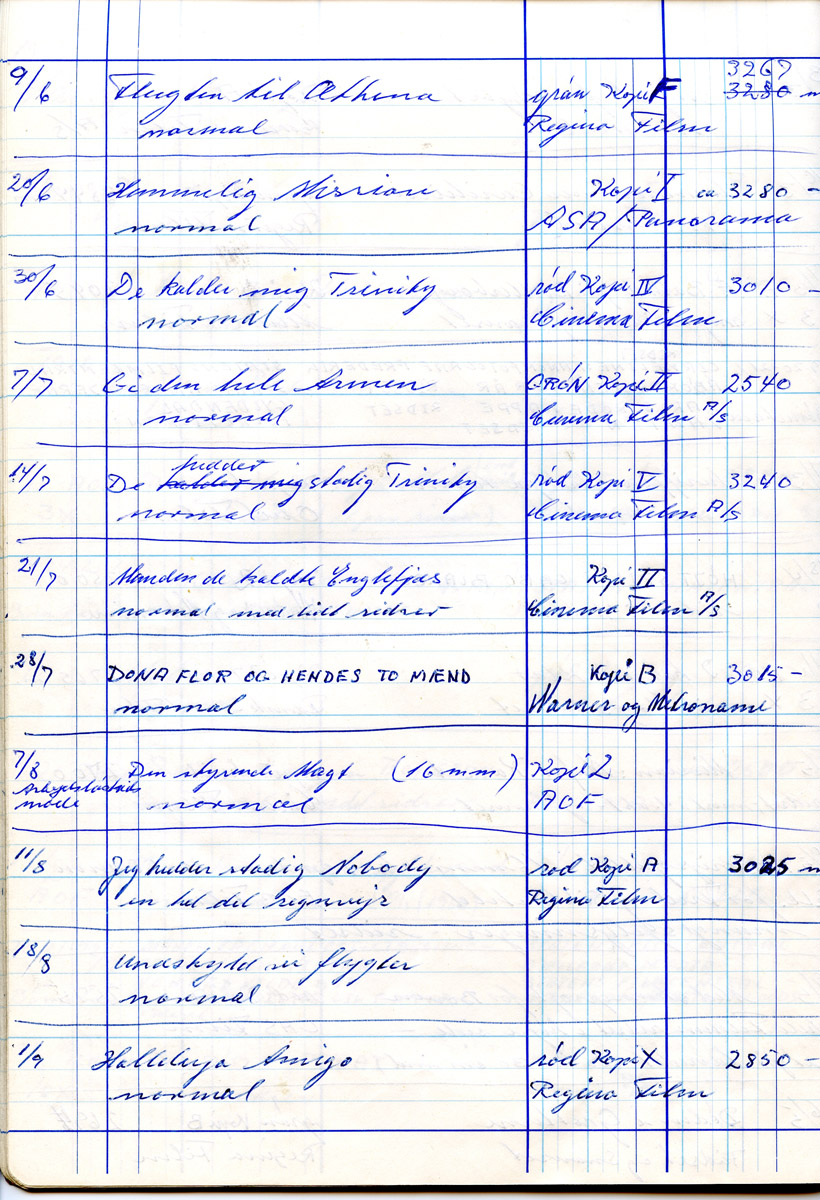 3267
9/6 Flugten til Athena grøn Kopi F 3280 m
normal Regina Film
20/6 Hemmelig Mission Kopi I ca 3280 -
normal ASA/Panorama
30/6 De kalder mig Trinity rød Kopi IV 3010 -
normal Cinema Film
7/7 Gi den hele Armen GRØN Kopi II 2540
normal Cinema Film A/S
hedder
14/7 De kalder mig stadig Trinity rød Kopi V 3240
normal Cinema Film A/S
21/7 Manden de kaldte Englefjæs Kopi II
normal med lidt Cinema Film A/S
28/7 DONA FLOR OG HENDES TO MÆND Kopi B 3015 -
normal Warner og Metronome
7/8 Den styrende Magt (16 mm) Kopi 2
møde normal AOF
11/8 Jeg hedder stadig Nobody rød Kopi A 3025 m
en hel del regnvejr Regina Film
18/8 Undskyld vi flygter
normal
1/9 Halleluja Amigo rød Kopi X 2850 -
normal Regina Film